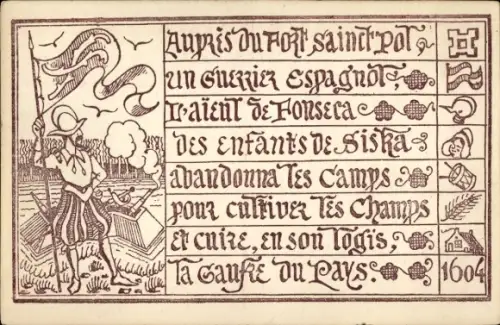 Auprès du Fort Sainct Pol
un Guerrier Espagnol,
L'aieul de Fonseca
des enfants de Siska
abandonna les Camps
pour cultiver les Champs
et cuire, en son logis,
la Gaufre du Pays. 1604